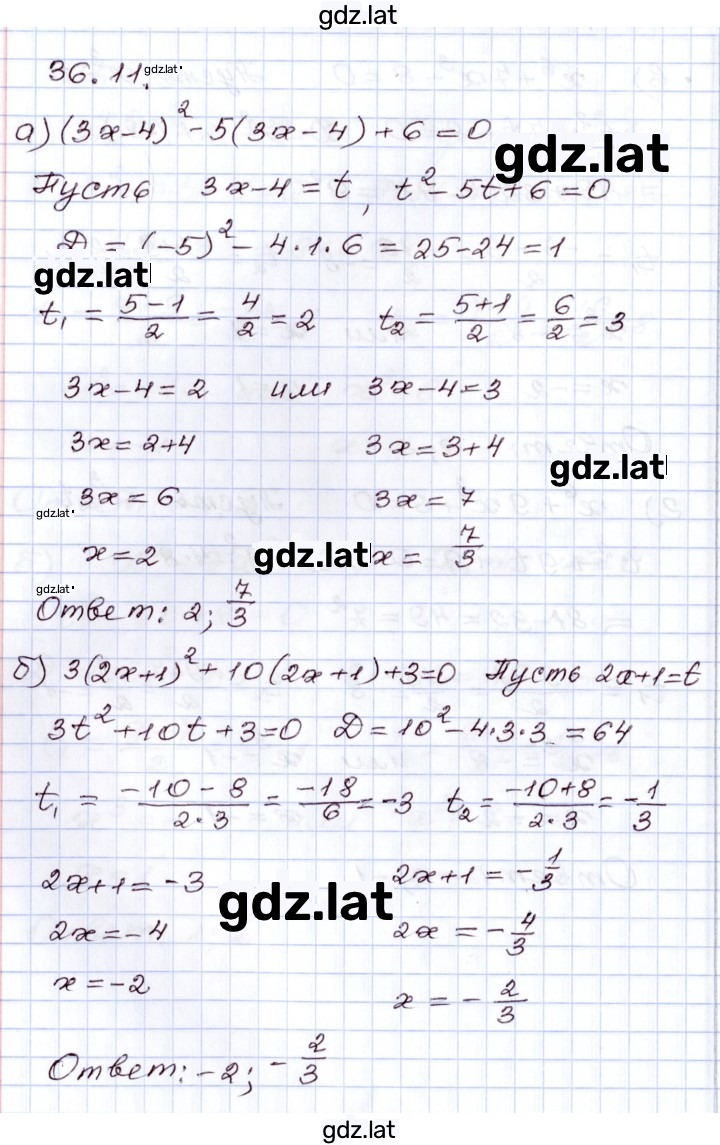 gdz.lat
36.11. gdz.lat
а) (3x-4)² - 5(3x-4) + 6 = 0
gdz.lat
Пусть 3x-4 = t, t² - 5t + 6 = 0
Д = (-5)² - 4·1·6 = 25-24 = 1
gdz.lat
t₁ = (5-1)/2 = 4/2 = 2 t₂ = (5+1)/2 = 6/2 = 3
3x-4 = 2 или 3x-4 = 3
3x = 2+4 3x = 3+4
gdz.lat
3x = 6 3x = 7
gdz.lat
x = 2 gdz.lat x = 7/3
gdz.lat
Ответ: 2; 7/3
б) 3(2x+1)² + 10(2x+1) + 3 = 0 Пусть 2x+1 = t
3t² + 10t + 3 = 0 Д = 10² - 4·3·3 = 64
t₁ = (-10-8)/(2·3) = -18/6 = -3 t₂ = (-10+8)/(2·3) = -1/3
2x+1 = -3 2x+1 = -1/3
gdz.lat
2x = -4 2x = -4/3
x = -2 x = -2/3
Ответ: -2; -2/3
gdz.lat